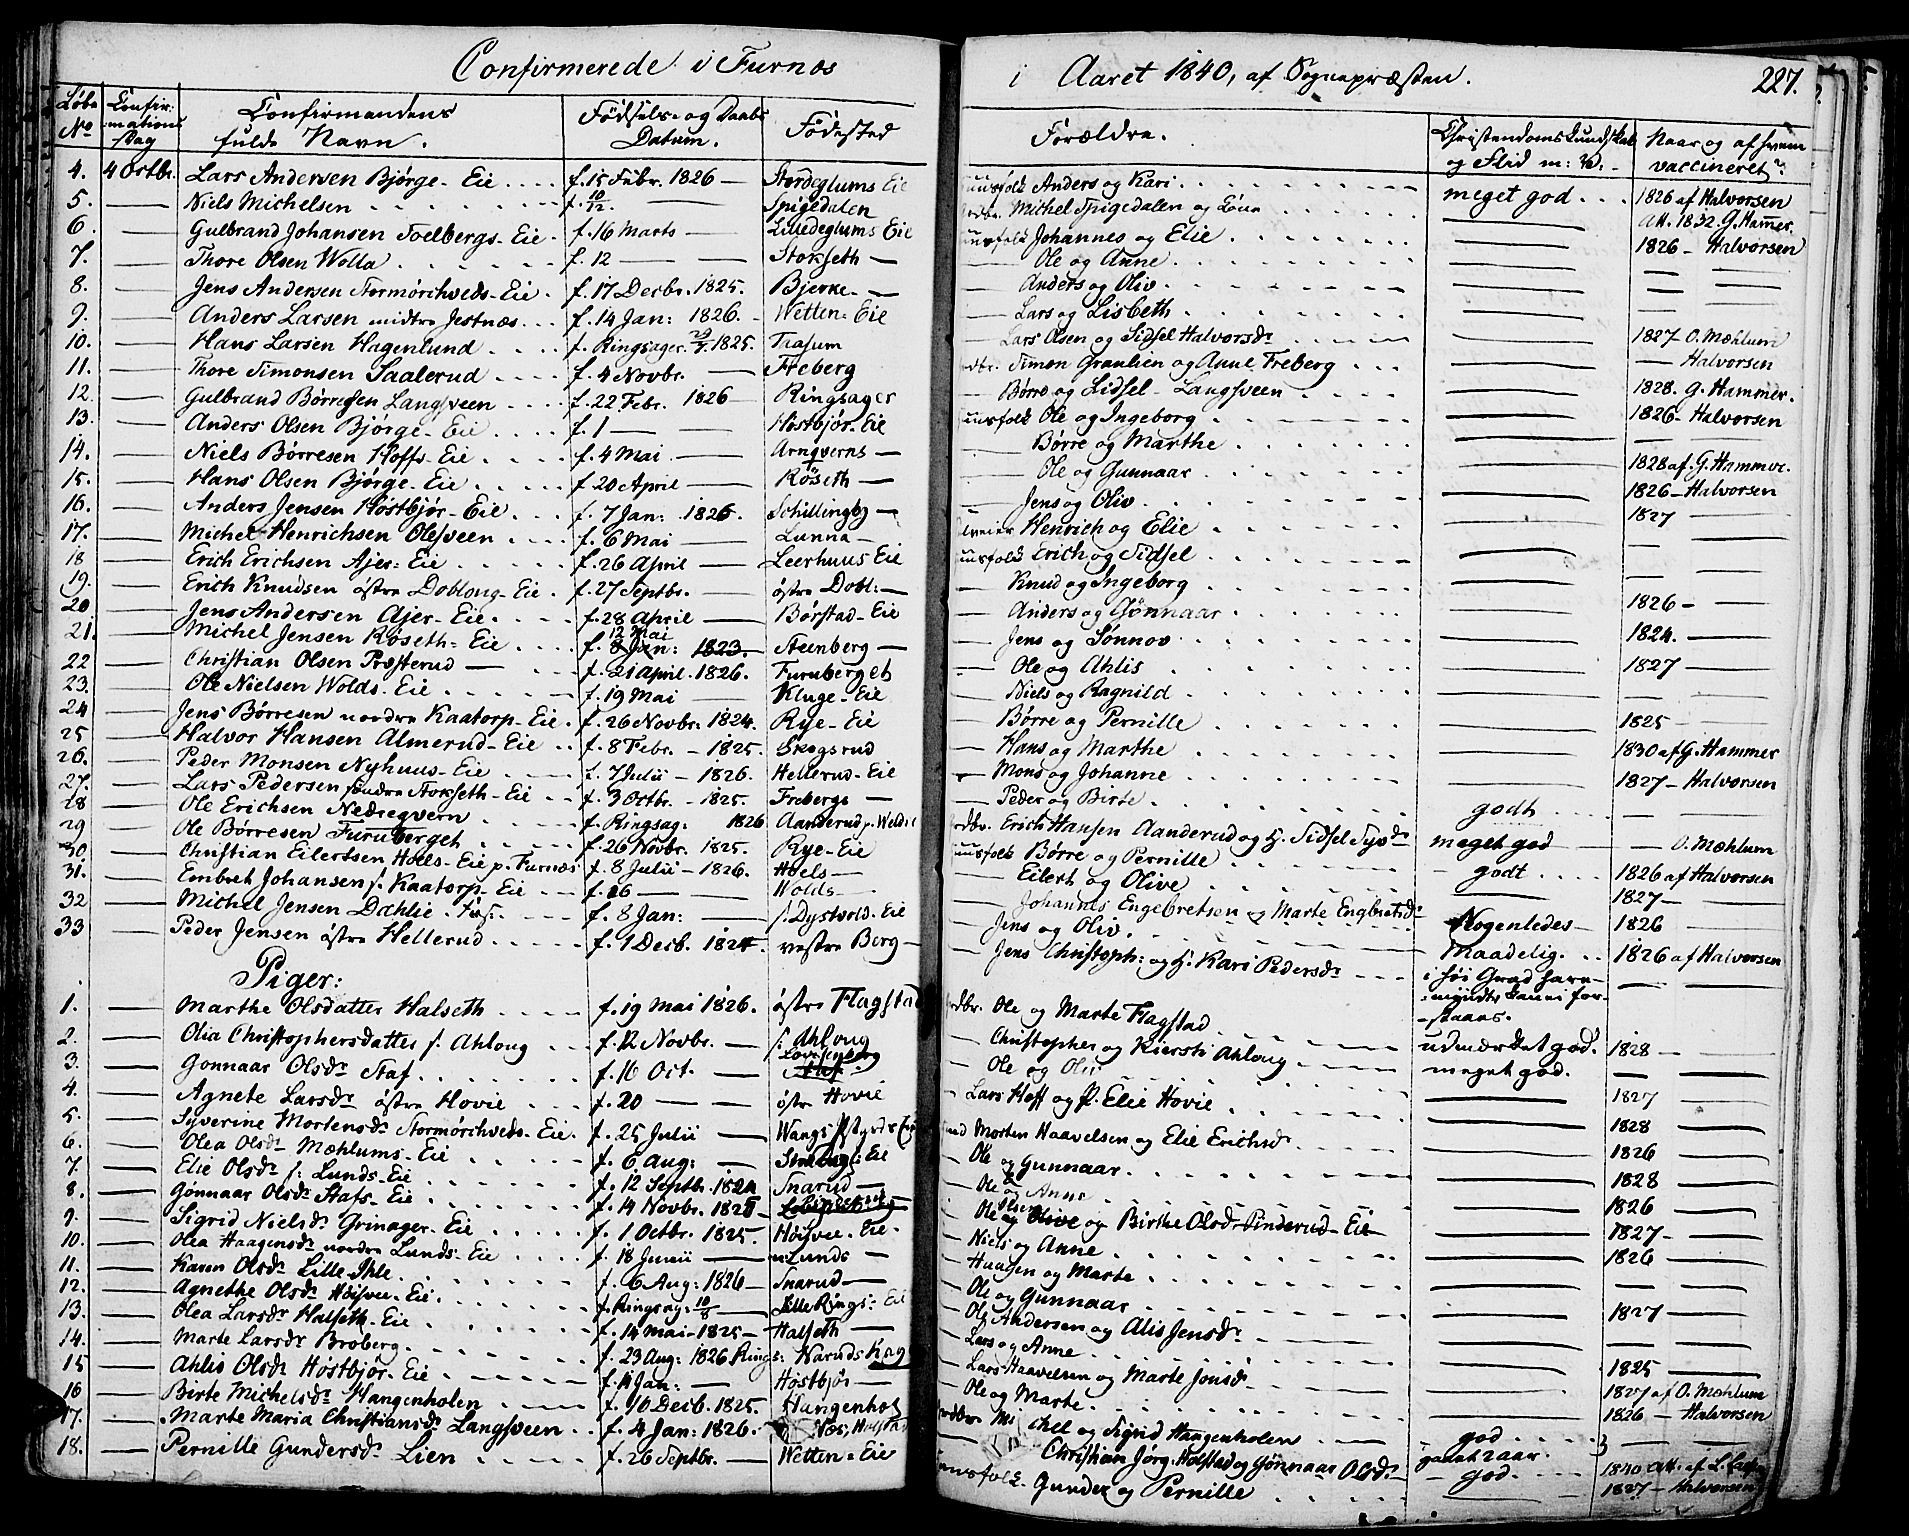 Confirmerede i Furnæs
i Aaret 1840, af Sognepræsten. 227.
Løbe No | Confirmations Dag | Confirmandens fulde Navn. | Fødsels- og Daabs Datum. | Fødested | Forældre. | Christendoms Kundskab og Flid m: V: | Naar og af hvem vaccineret?
4. 4 Octbr. Lars Andersen Bjørge-Eie f. 15 Febr. 1826 — Stordeglums Eie — Anders og Kari meget god 1826 af Halvorsen
5. — Niels Michelsen f. 10/12 — Spigedalen Michel Spigedalen og — Att. 1832. G. Hammer
6. — Gulbrand Johansen Toelbergs-Eie f. 16 Marts — Lilledeglums Eie Johannes og Elie — 1826 — Halvorsen
7. — Thore Olsen Wolla f. 12 — — Stokseth — — Ole og Anne — — —
8. — Jens Andersen Stormørchveds-Eie f. 17 Decbr. 1825. Bjerke — — Anders og Oliv — — —
9. — Anders Larsen midtre Jestnæs f. 14 Jan: 1826. Wetten-Eie — Lars og Lisbeth — — —
10. — Hans Larsen Hagenlund f. Ringsager 1825. Taasum — Lars Olsen og Sidsel Halvorsdr — 1827 O. Mæhlum
11. — Thore Simonsen Saalerud f. 4 Novbr. — Freberg Simon Graulien og Anne Freberg — — Halvorsen
12. — Gulbrand Børresen Langsveen f. 22 Febr. 1826 Ringsager — Børre og Sidsel Langsveen — 1828. G. Hammer.
13. — Anders Olsen Bjørge-Eie f. 1 — — Høstbjør-Eie Ole og Ingeborg — 1826 — Halvorsen
14. — Niels Børresen Hoffs-Eie f. 4 Mai — Arnqverns — Børre og Marthe — —
15. — Hans Olsen Bjørge-Eie f. 20 April — Røseth — — Ole og Gunnaar — 1828 af G. Hammer.
16. — Anders Jensen Høstbjør-Eie f. 7 Jan: 1826. Schillingby — — Jens og Oliv — 1826 — Halvorsen
17. — Michel Henrichsen Olesveen f. 6 Mai — Lunna — Henrich og Elie — 1827 —
18 — Erich Erichsen Ajer-Eie f. 26 April — Leerhuus Eie Erich og Sidsel — — —
19. — Erich Knudsen østre Doblong-Eie f. 27 Septbr. — østre Dobl: — — Knud og Ingeborg — — —
20 — Jens Andersen Ajer-Eie f. 28 April — Børstad-Eie — Anders og Gønnaar — 1826 — —
21. — Michel Jensen Røseth-Eie f. 12 Mai 8 Jan: 1823. Steenberg — — Jens og Sønnov — 1824. —
22 — Christian Olsen Præsterud — f. 21 April 1826. Furuberget — Ole og Ahlis — 1827 —
23. — Ole Nielsen Wolds-Eie f. 19 Mai Kluge-Eie — Niels og Ragnild — — —
24 — Jens Børresen nordre Kaatorp-Eie f. 26 Novbr. 1824. Rye-Eie — Børre og Pernille — 1825 —
25 — Halvor Hansen Almerud-Eie f. 8 Febr. — 1825. Skogsrud — Hans og Marthe — 1830 af G. Hammer
26. — Peder Monsen Nyhuus-Eie f. 7 Julii — 1826. Hellerud-Eie — Mons og Johanne — 1827 — Halvorsen
27. — Lars Pedersen søndre Stokseth-Eie f. 3 Octbr. — 1825. Frebergs — — Peder og Birte godt — —
28 — Ole Erichsen Nedreqvern f. Ringsag: 1826 Aanderud Erich Hansen Aanderud og H. Sidsel meget god — O. Mæhlum
29 — Ole Børresen Furuberget f. 26 Novbr. 1825. Rye-Eie Børre og Pernille godt 1826 af Halvorsen
30 — Christian Eilertsen Hoels-Eie p. Furnæs f. 8 Julii — 1826. Hoels — — Eilert og Olive — 1827 —
31. — Embret Johansen s. Kaatorp-Eie f. 26 — — Wolds — Johannes Engebretsen og Marte Engbretsdr Nogenledes 1826 —
32 — Michel Jensen Dæhlie f. 8 Jan: — s. Dystvold-Eie — Jens og Oliv Maadelig 1826 af Halvorsen
33 — Peder Jensen østre Hellerud f. 1 Decb. 1824. vestre Berg — — Jens Christoph: og H. Kari Pedersdr
Piger:
1. — Marthe Olsdatter Halseth f. 19 Mai 1826. østre Flagstad Ole og Marte Flagstad
2. — Olia Christophersdatter s. Ahloug f. 12 Novbr. — s: Ahloug — Christopher og Kiersti Ahloug udmærket god. 1828 —
3. — Gonnaar Olsdr Staf f. 16 Oct. — Lovisenberg — Ole og Oliv meget god.
4. — Agnete Larsdr østre Hovie f. 20 — — østre Hovie — Lars Hoff og P. Elie Hovie — 1827 —
5. — Syverine Mortensdr Stormørchveds-Eie f. 25 Julii — Wangs Morten Haavelsen og Elie Erichsdr — 1828 —
6. — Olea Olsdr Mæhlums-Eie f. 6 Aug: — Eie — Ole og Gunnaar — 1826 —
7. — Elie Olsdr s: Lunds-Eie f. 12 Septbr. Snarud — — Ole og Anne — 1828 —
8. — Gønnaar Olsdr Stafs-Eie f. 14 Novbr. — Ole Olsen og Birthe Olsdr Pinderud-Eie — 1826 —
9. — Sigrid Nielsdr Grinager-Eie f. 1 Octbr. 1825. Høisvee-Eie — Niels og Anne — 1827 —
10. — Olea Haagensdr nordre Lunds-Eie f. 18 Junii — n: Lunds — — Haagen og Marte — 1826 —
11. — Karen Olsdr Lille Ihle f. 6 Aug: 1826 — Snarud — — Ole og Gunnaar — — —
12. — Agnethe Olsdr Høisvee-Eie f. Ringsag: 10/8 — Lille Rings: Eie — Ole Andersen og Alis Jensdr — 1827 —
13. — Olea Larsdr Halseth-Eie f. 14 Mai — 1825 — Halseth — — Lars og Anne — — —
14. — Marte Larsdr Broberg f. 23 Aug: 1826 Rings: Narud — Lars Haavelsen og Marte Jonsdr — 1825 —
15 — Ahlis Olsdr Høstbjør-Eie f. 11 Jan: — Høstbjør — — Ole og Marte — 1827 af O. Mæhlum
16 — Birte Michelsdr Hangenholen f. 10 Decb. 1825. Hangenhol Michel og Sigrid Hangenholen god 1826 — Halvorsen
17. — Marte Maria Christiansdr Langsveen f. 4 Jan: 1826. Næs, — Christian Jørg: Holstad og Gønnaar Olsdr god 1840 Att. af L.
18. — Pernille Gundersdr Lien f. 26 Septbr. — Wetten-Eie Gunder og Pernille — 1827 — Halvorsen